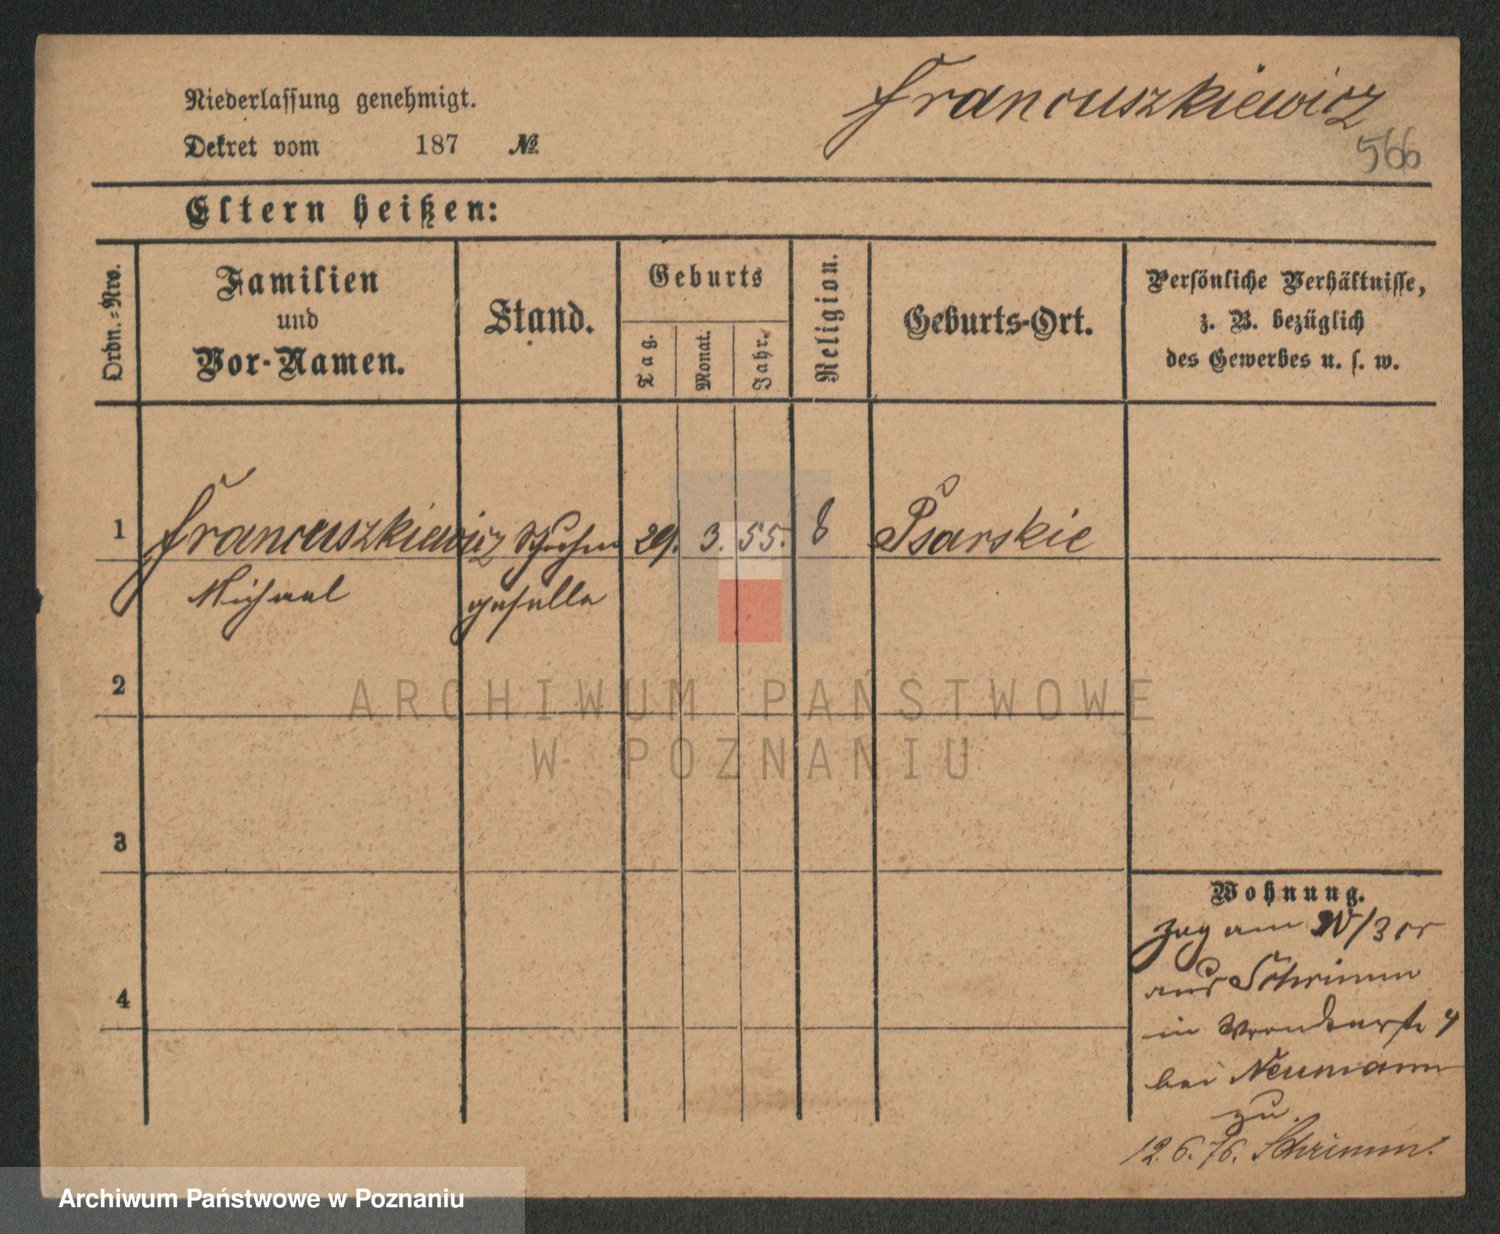 Niederlassung genehmigt.
Dekret vom 187 №
Francuszkiewicz
566
Eltern heißen:
Ordn.=Nro.
Familien
und
Vor-Namen.
Stand.
Geburts
Tag.
Monat.
Jahr.
Religion.
Geburts-Ort.
Persönliche Verhältnisse,
z. B. bezüglich
des Gewerbes u. s. w.
1 Francuszkiewicz Schuhm 29. 3. 55. Psarskie
Michael geselle
2
3
4
Wohnung.
Zug am /3 cr
aus Schrimm
in Wronkerstr 4
bei Neumann
zu.
12.6.76. Schrimm.
ARCHIWUM PAŃSTWOWE
W POZNANIU
Archiwum Państwowe w Poznaniu